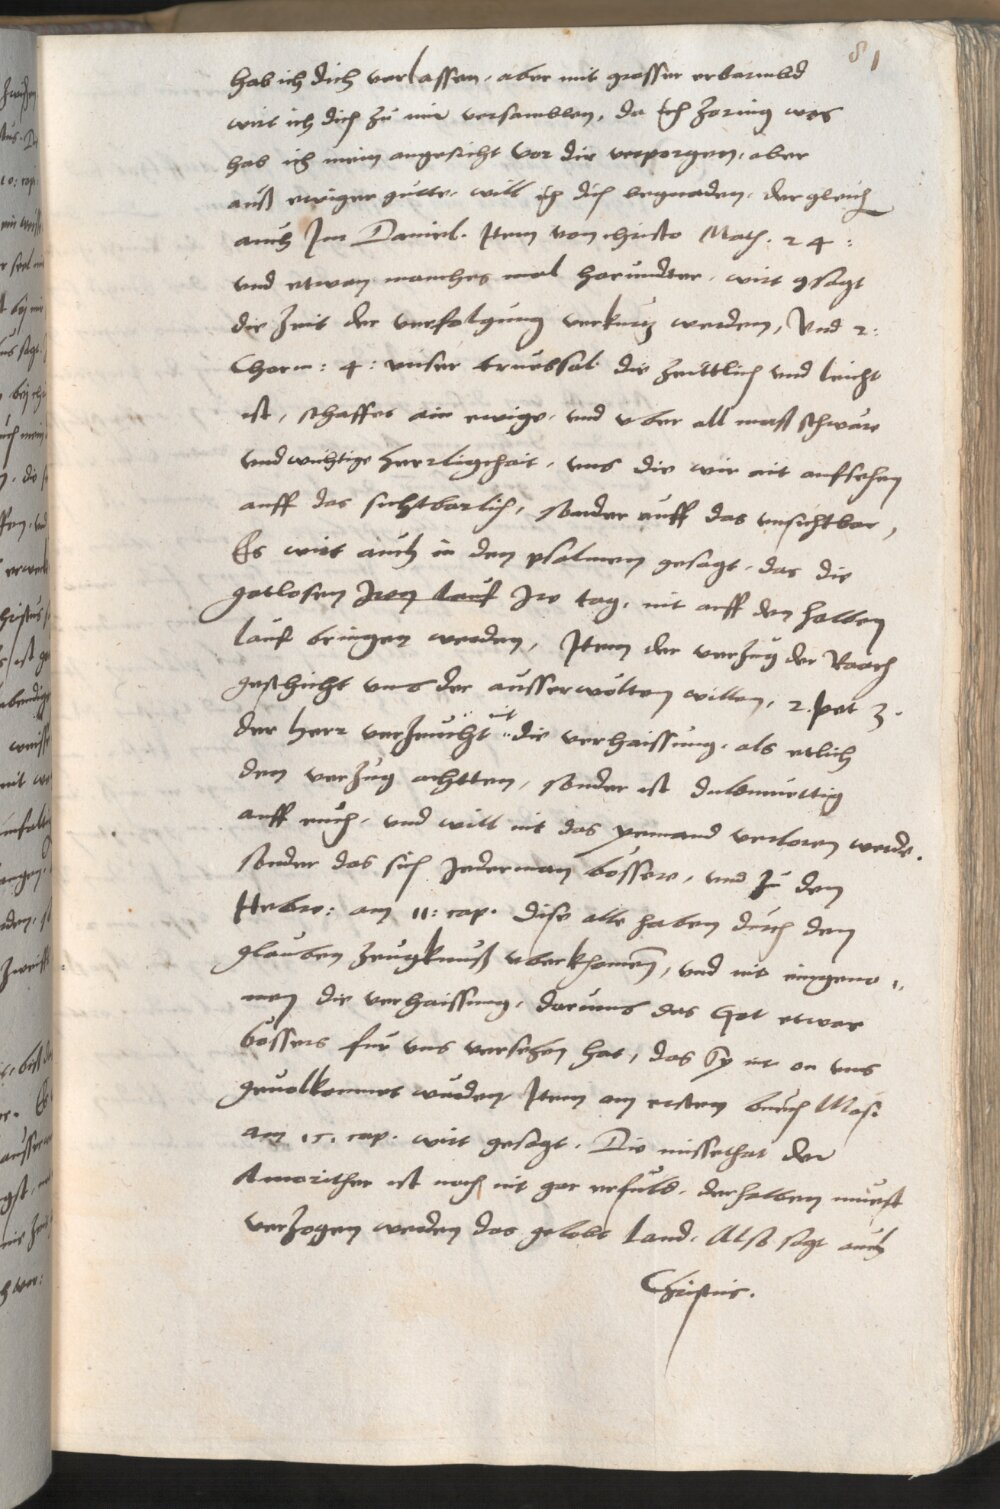 81
hab ich dich verlassen, aber mit grosser erbarmbd
wirt ich dich zu mir versamblen, da ich zornig was
hab ich mein angesicht vor dir verporgen, aber
auß ewiger gutte, will ich dich begnaden, der gleich
auch Im Daniel. Item von christo Math. 24:
vnd etwan manches mal harundter, wirt gsagt
die Zeit der verfolgung verkurtz werden, Vnd 2:
Chorin: 4: vnser truebsal die zeittlich vnd leicht
ist, schaffet ain ewige, vnd vber all mass schwäre
vnd wichtige herrligchait, vns die wir nit aufsehen
auff das sichtbarlich, sonder auff das vnsichtbar,
Es wirt auch in den psalmen gesagt, das die
gotlosen Iren lauf Ire tag, nit auff den halben
lauf bringen werden, Item der verzug der Raach
geschicht vmb der ausserwölten willen, 2. pet 3.
der herr verzeucht nit die verhaissung, als etlich
den verzug achtten, sonder ist dulbmuettig
auff euch, vnd will nit das yemand verloren werde,
sonder das sich Jederman bössere, vnd zu den
Hebre: am 11: cap. dise alle haben durch den
glauben zeugknuß vberkhomen, vnd nit eingeno
men die verhaissung, darumb das Got etwas
bössers für vns versehen hat, das sy nit on vns
gevolkomnet wurden, Item am ersten buech Mosi
am 15. cap. wirt gesagt. Die missethat der
Amorither ist noch nit gar erfüld, derhalben muest
verzogen werden das gelobt land. Also sagt auch
Christus.